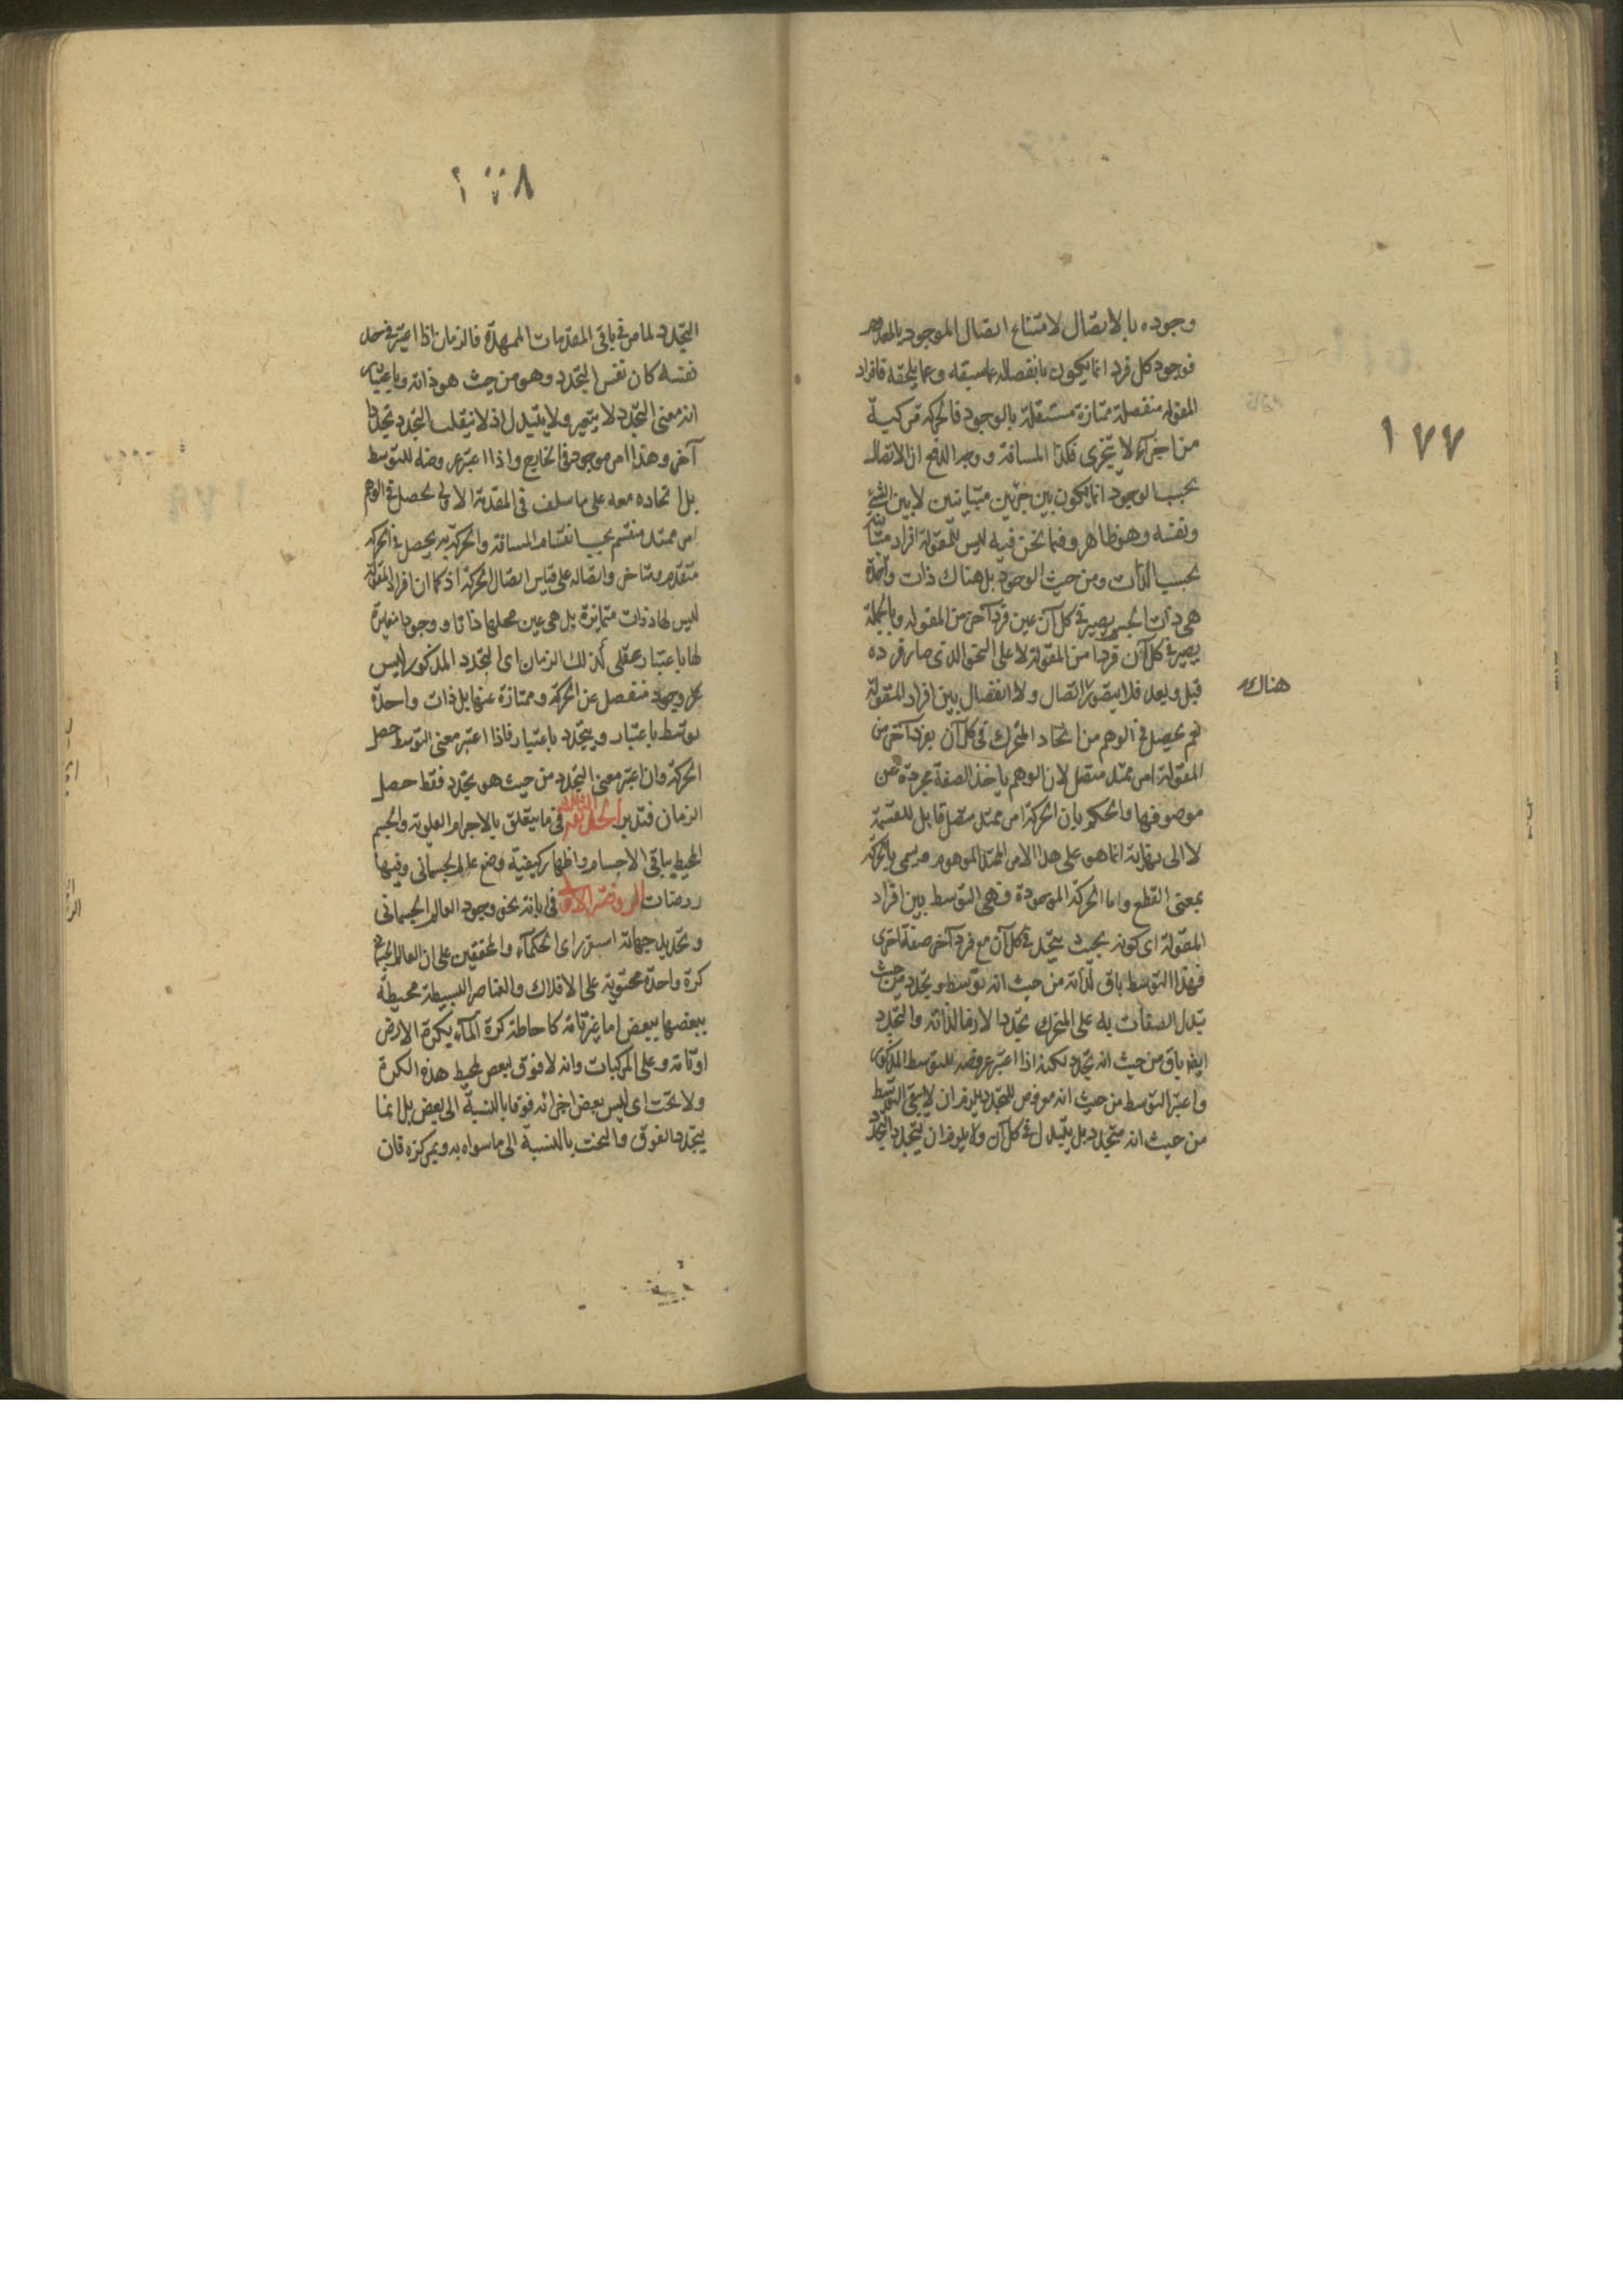 ١٧٧
وجوده بالاتصال لامتناع اتصال الموجود بالمعدوم
فوجود كل فرد انما يكون بانفصاله عما سبقه وعما يلحقه فافراد
المقولة منفصلة ممتازة مستقلة بالوجود فالحركة مركبة
من اجزاء لا يتجزى فكذا المسافة ووجه الدفع ان الاتصال
بحسب الوجود انما يكون بين جزئين متباينين لا بين الشئ
ونفسه وهو ظاهر وفيما نحن فيه ليس للمقولة افراد
بحسب الذات ومن حيث الوجود بل هناك ذات واحدة
هي ذات الجسم يصير في كل آن عين فرد آخر من المقولة وبالجملة
يصير في كل آن فردا من المقولة لا على النحو الذى صار فرده
قبل وبعد فلا يتصور اتصال ولا انفصال بين افراد المقولة
هناك
نعم يحصل في الوهم من اتحاد المتحرك في كل آن بفرد آخر من
المقولة امر ممتد متصل لان الوهم ياخذ الصفة مجردة عن
موصوفها والحكم بان الحركة امر ممتد متصل قابل للقسمة
لا الى نهاية انما هو على هذا الامر الممتد الموهوم ويسمى بالحركة
بمعنى القطع واما الحركة الموجودة فهى التوسط بين افراد
المقولة اى كونه بحيث يتحد في كل آن مع فرد آخر صفة اخرى
فهذا التوسط باق لذاته من حيث انه توسط ويتجدد من حيث
تبدل الصفات به على المتحرك تجددا لازما لذاته والتجدد
ايضا باق من حيث انه تجدد لكنه اذا اعتبر عروضه للتوسط المذكور
واعتبر التوسط من حيث انه معروض للتجدد يلزم ان لا يبقى التوسط
من حيث انه متجدد بل يتبدل في كل آن ولا يلزم ان يتجدد التجدد
١٧٨
التجدد لما مر في باقى المقدمات الممهدة فالزمان اذا اعتبر في حد
نفسه كان نفس التجدد وهو من حيث هو ذاته وباعتبار
انه معنى التجدد لا يتغير ولا يتبدل اذ لا ينقلب التجدد تجددا
آخر وهذا امر موجود في الخارج واذا اعتبر عروضه للتوسط
بل اتحاده معه على ما سلف في المقدمة الاولى يحصل في الوهم
امر ممتد منقسم بحسب انقسام المسافة والحركة به يحصل في الحركة
متقدم ومتاخر واتصاله على قياس اتصال الحركة اذ كما ان افراد المقولة
ليس لها ذوات متمايزة بل هى عين محلها ذاتا ووجودا مغايرة
لها باعتبار عقلى كذلك الزمان اى التجدد المذكور ليس
له وجود منفصل عن الحركة وممتازة عنها بل ذات واحدة
توسط باعتبار ويتجدد باعتبار فاذا اعتبر معنى التوسط حصل
الحركة وان اعتبر معنى التجدد من حيث هو تجدد فقط حصل
الزمان فتدبر فى ما يتعلق بالاجرام العلوية والجسم
المحيط بباقى الاجسام واظهار كيفية وضع عالم الجسمانى وفيها
روضات الروضة الاولى فى ابانة نحو وجود العالم الجسمانى
وتحديد جهاته استقر راى الحكماء والمحققين على ان العالم الجسمانى
كرة واحدة محتوية على الافلاك والعناصر البسيطة محيطة
ببعضها ببعض اما بغير تامة كاحاطة كرة الماء بكرة الارض
او تامة وعلى المركبات وانه لا فوق لبعض لمحيط هذه الكرة
ولا تحت اى ليس بعض اجزائه فوقا بالنسبة الى بعض بل انما
يتجدد الفوق والتحت بالنسبة الى ما سواه به وبمركزه فان